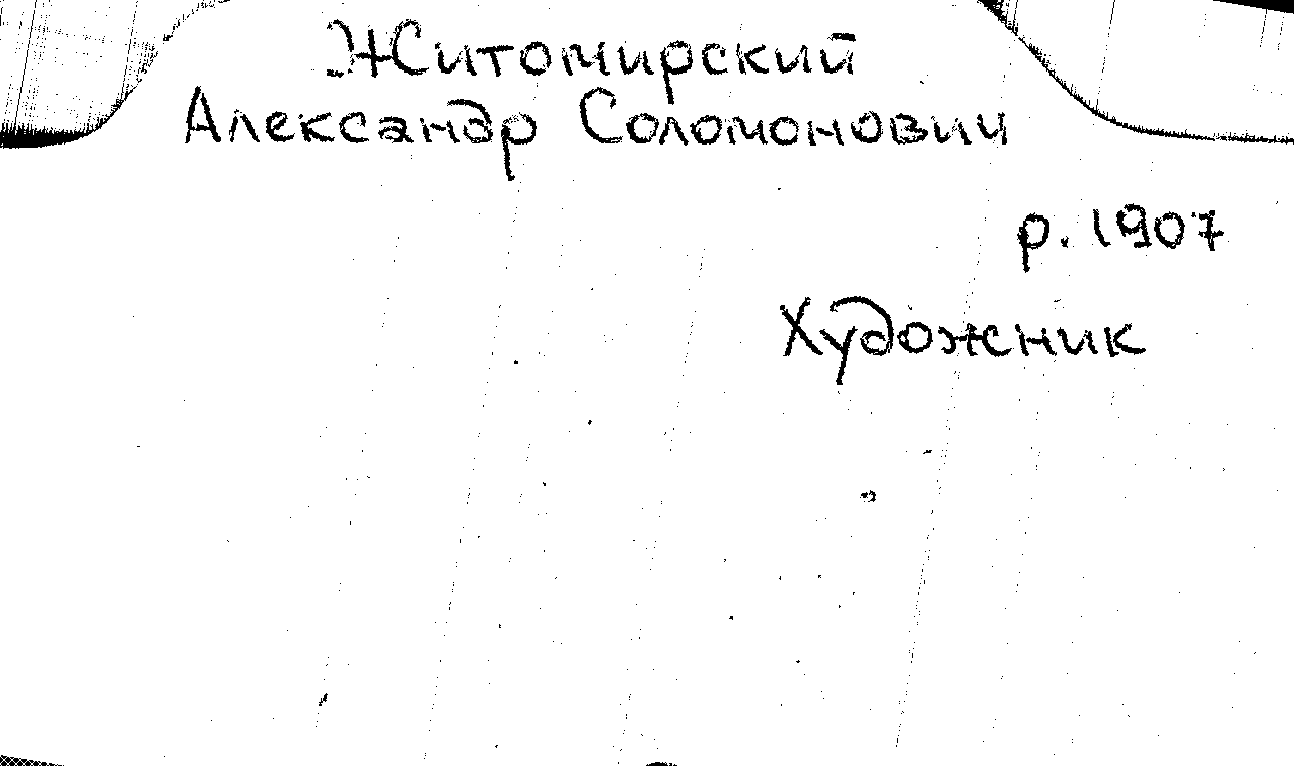 Житомирский
Александр Соломонович
р. 1907
Художник